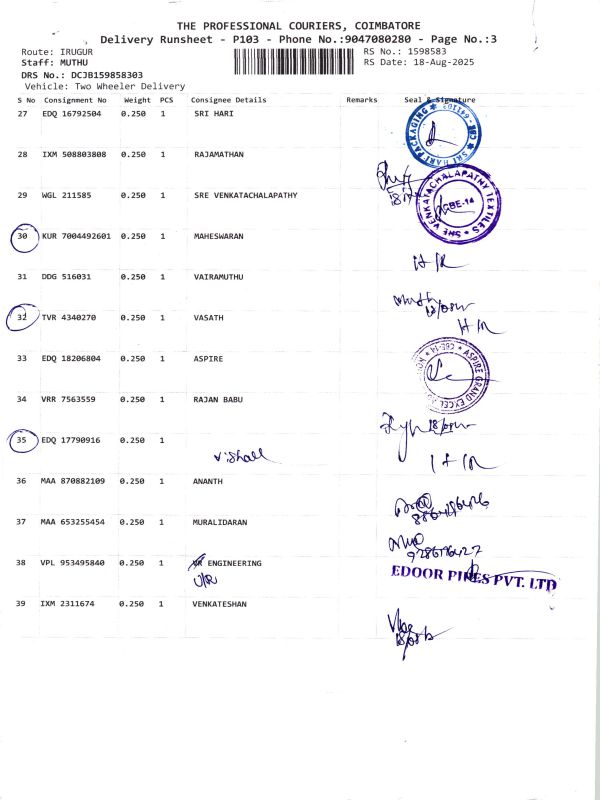 THE PROFESSIONAL COURIERS, COIMBATORE
Delivery Runsheet - P103 - Phone No.:9047080280 - Page No.:3
Route: IRUGUR RS No.: 1598583
Staff: MUTHU RS Date: 18-Aug-2025
DRS No.: DCJB159858303
Vehicle: Two Wheeler Delivery
S No Consignment No Weight PCS Consignee Details Remarks Seal & Signature
27 EDQ 16792504 0.250 1 SRI HARI
SRI HARI PACKAGING * CBE - 641402 *
28 IXM 508803808 0.250 1 RAJAMATHAN
29 WGL 211585 0.250 1 SRE VENKATACHALAPATHY
* SRE VENKATACHALAPATHY TEXTILES * CBE-14
30 KUR 7004492601 0.250 1 MAHESWARAN
31 DDG 516031 0.250 1 VAIRAMUTHU
32 TVR 4340270 0.250 1 VASATH
33 EDQ 18206804 0.250 1 ASPIRE
* ASPIRE GRAND EXCEL CBE-14 *
34 VRR 7563559 0.250 1 RAJAN BABU
35 EDQ 17790916 0.250 1
Vishall
36 MAA 870882109 0.250 1 ANANTH
37 MAA 653255454 0.250 1 MURALIDARAN
38 VPL 953495840 0.250 1 ENGINEERING
EDOOR PIPES PVT. LTD
39 IXM 2311674 0.250 1 VENKATESHAN